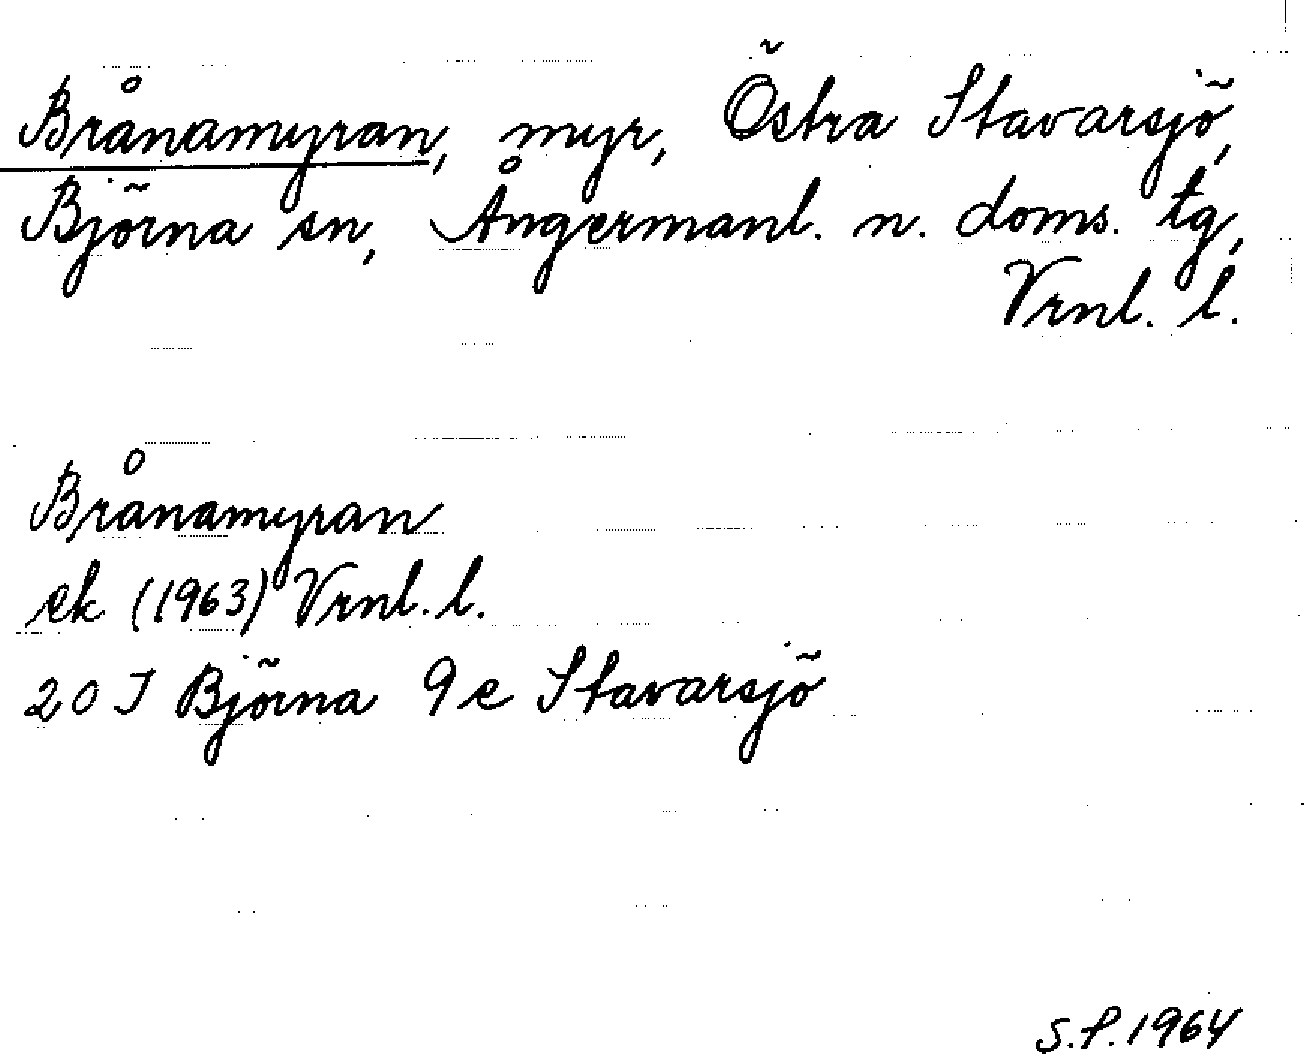 Brånamyran, myr, Östra Stavarsjö,
Björna sn, Ångermanl. n. doms. tg,
Vrnl. l.
Brånamyran
ek (1963) Vrnl. l.
20 J Björna 9e Stavarsjö
S.P. 1964